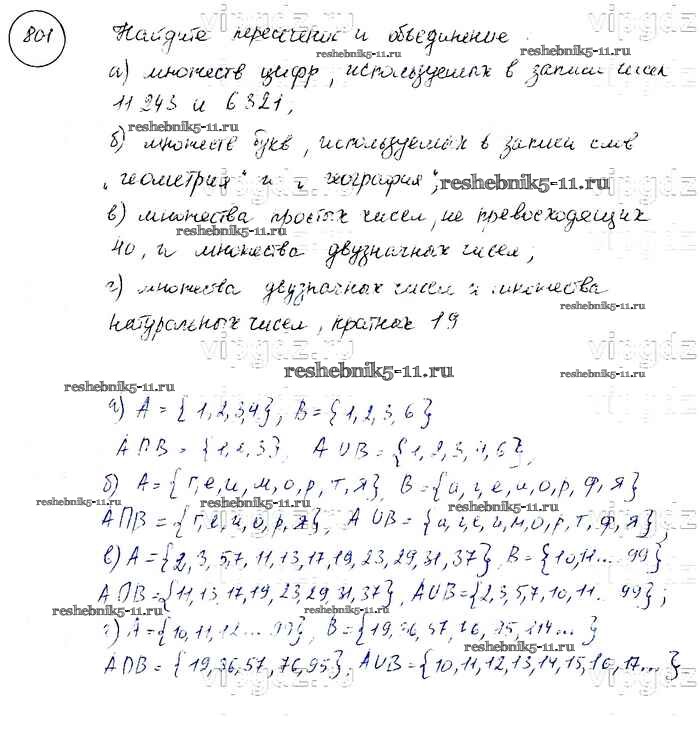 801
Найдите пересечение и объединение
а) множеств цифр, используемых в записи чисел
11 243 и 6321;
б) множеств букв, используемых в записи слов
„геометрия“ и „география“;
в) множества простых чисел, не превосходящих
40, и множества двузначных чисел;
г) множества двузначных чисел и множества
натуральных чисел, кратных 19
а) A = {1,2,3,4}; B = {1,2,3,6}
A∩B = {1,2,3}, A∪B = {1,2,3,4,6};
б) A = {г,е,и,м,о,р,т,я}, B = {а,г,е,и,о,р,ф,я}
A∩B = {г,е,и,о,р,я}, A∪B = {а,г,е,и,м,о,р,т,ф,я};
в) A = {2,3,5,7,11,13,17,19,23,29,31,37}, B = {10,11...99}
A∩B = {11,13,17,19,23,29,31,37}, A∪B = {2,3,5,7,10,11...99};
г) A = {10,11,12...99}, B = {19,36,57,76,95,114...}
A∩B = {19,36,57,76,95}, A∪B = {10,11,12,13,14,15,16,17...}
vipgdz
reshebnik5-11.ru